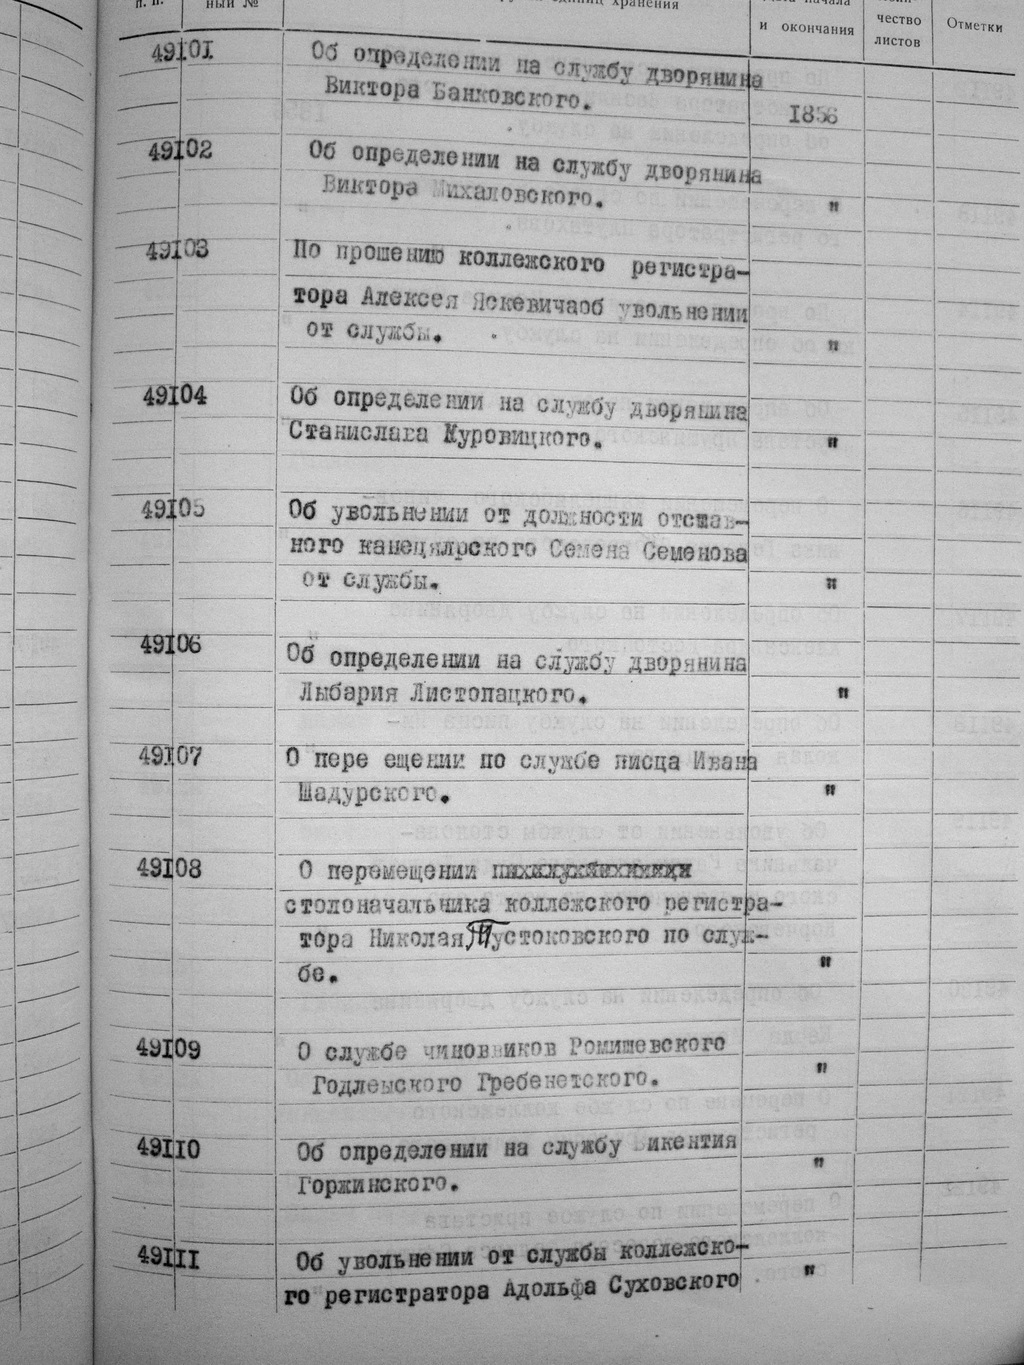 п. п.
ный №
единиц хранения
и окончания
чество
листов
Отметки
49101 Об определении на службу дворянина
Виктора Банковского. 1856
49102 Об определении на службу дворянина
Виктора Михаловского. "
49103 По прошению коллежского регистра-
тора Алексея Яскевичаоб увольнении
от службы. "
49104 Об определении на службу дворянина
Станислава Куровицкого. "
49105 Об увольнении от должности отстав-
ного канецялрского Семена Семенова
от службы. "
49106 Об определении на службу дворянина
Лыбария Листопацкого. "
49107 О пере ещении по службе писца Ивана
Шадурского. "
49108 О перемещении
столоначальника коллежского регистра-
тора Николая Пустоковского по служ-
бе. "
49109 О службе чиновников Ромишевского
Годлемского Гребенетского. "
49110 Об определении на службу икентия
Горжинского. "
49111 Об увольнении от службы коллежско-
го регистратора Адольфа Суховского "